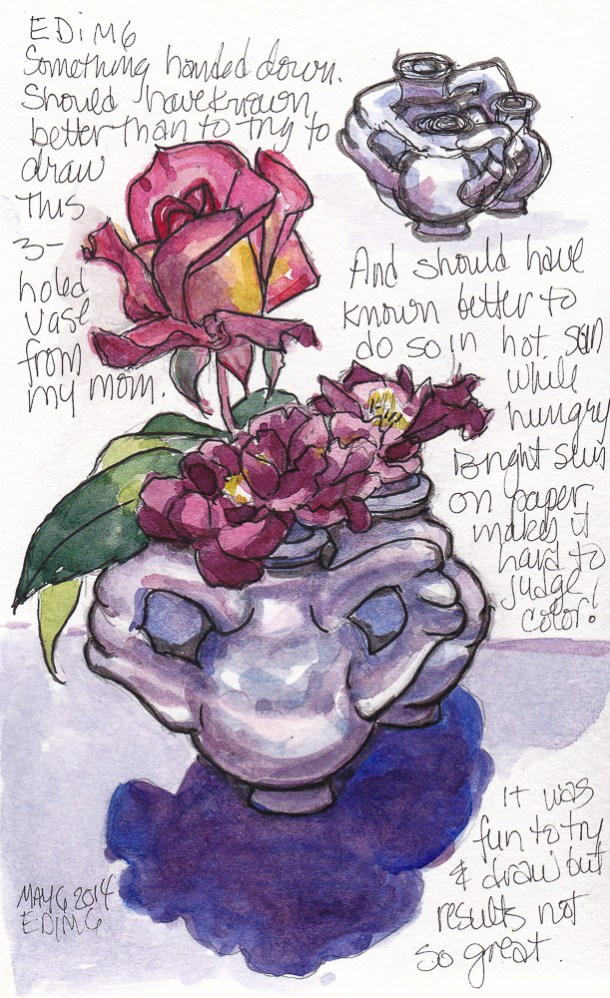 EDiM6
Something handed down.
Should have known
better than to try to
draw
This
3-
holed
vase
from
my mom.
And should have
known better to
do so in hot sun
while
hungry
Bright sun
on paper
makes it
hard to
judge
color!
it was
fun to try
& draw but
results not
so great.
MAY 6 2014
EDIM6